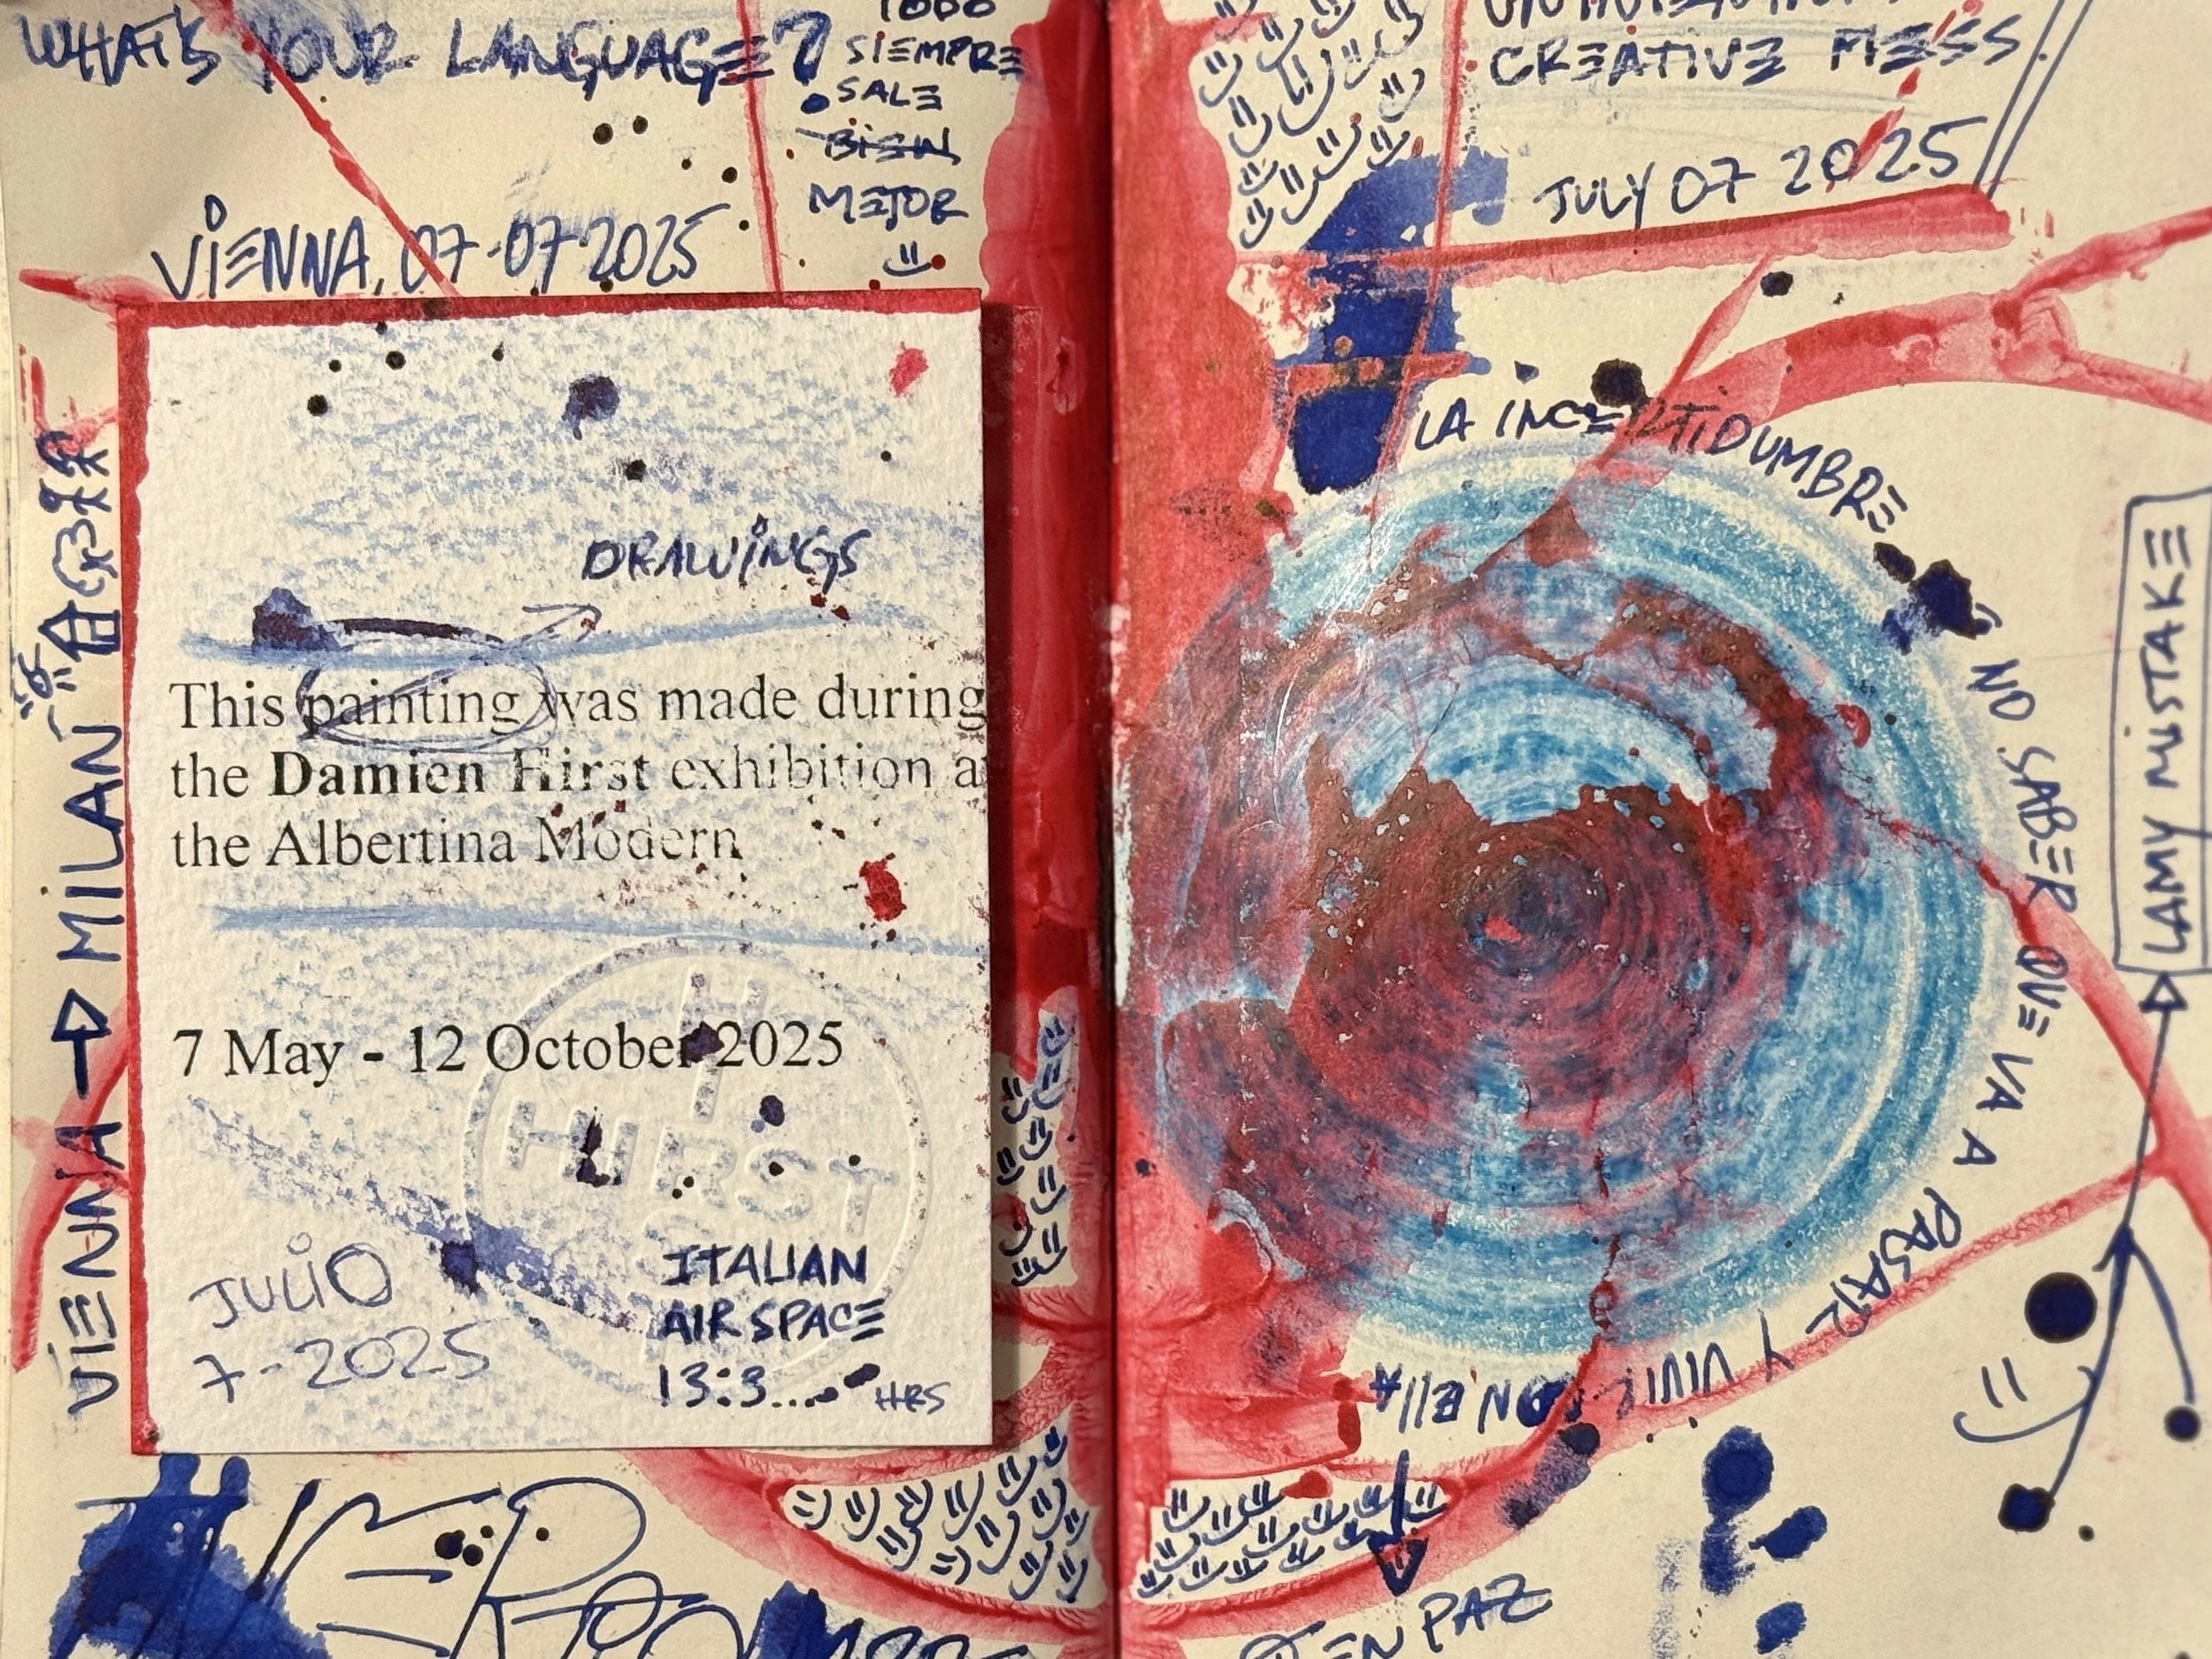 WHAT'S YOUR LANGUAGE?
TODO
SIEMPRE
SALE
BIEN
MEJOR
VIENNA, 07-07 2025
VIENNA → MILAN
DRAWINGS
This painting was made during
the Damien Hirst exhibition a
the Albertina Modern
7 May - 12 October 2025
HIRST
JULIO
7-2025
ITALIAN
AIR SPACE
13:3....
HRS
CREATIVE MESS
JULY 07 2025
LA INCERTIDUMBRE
NO SABER QUE VA A PASAR Y VIVIR CON ELLA
EN PAZ
LAMY MISTAKE